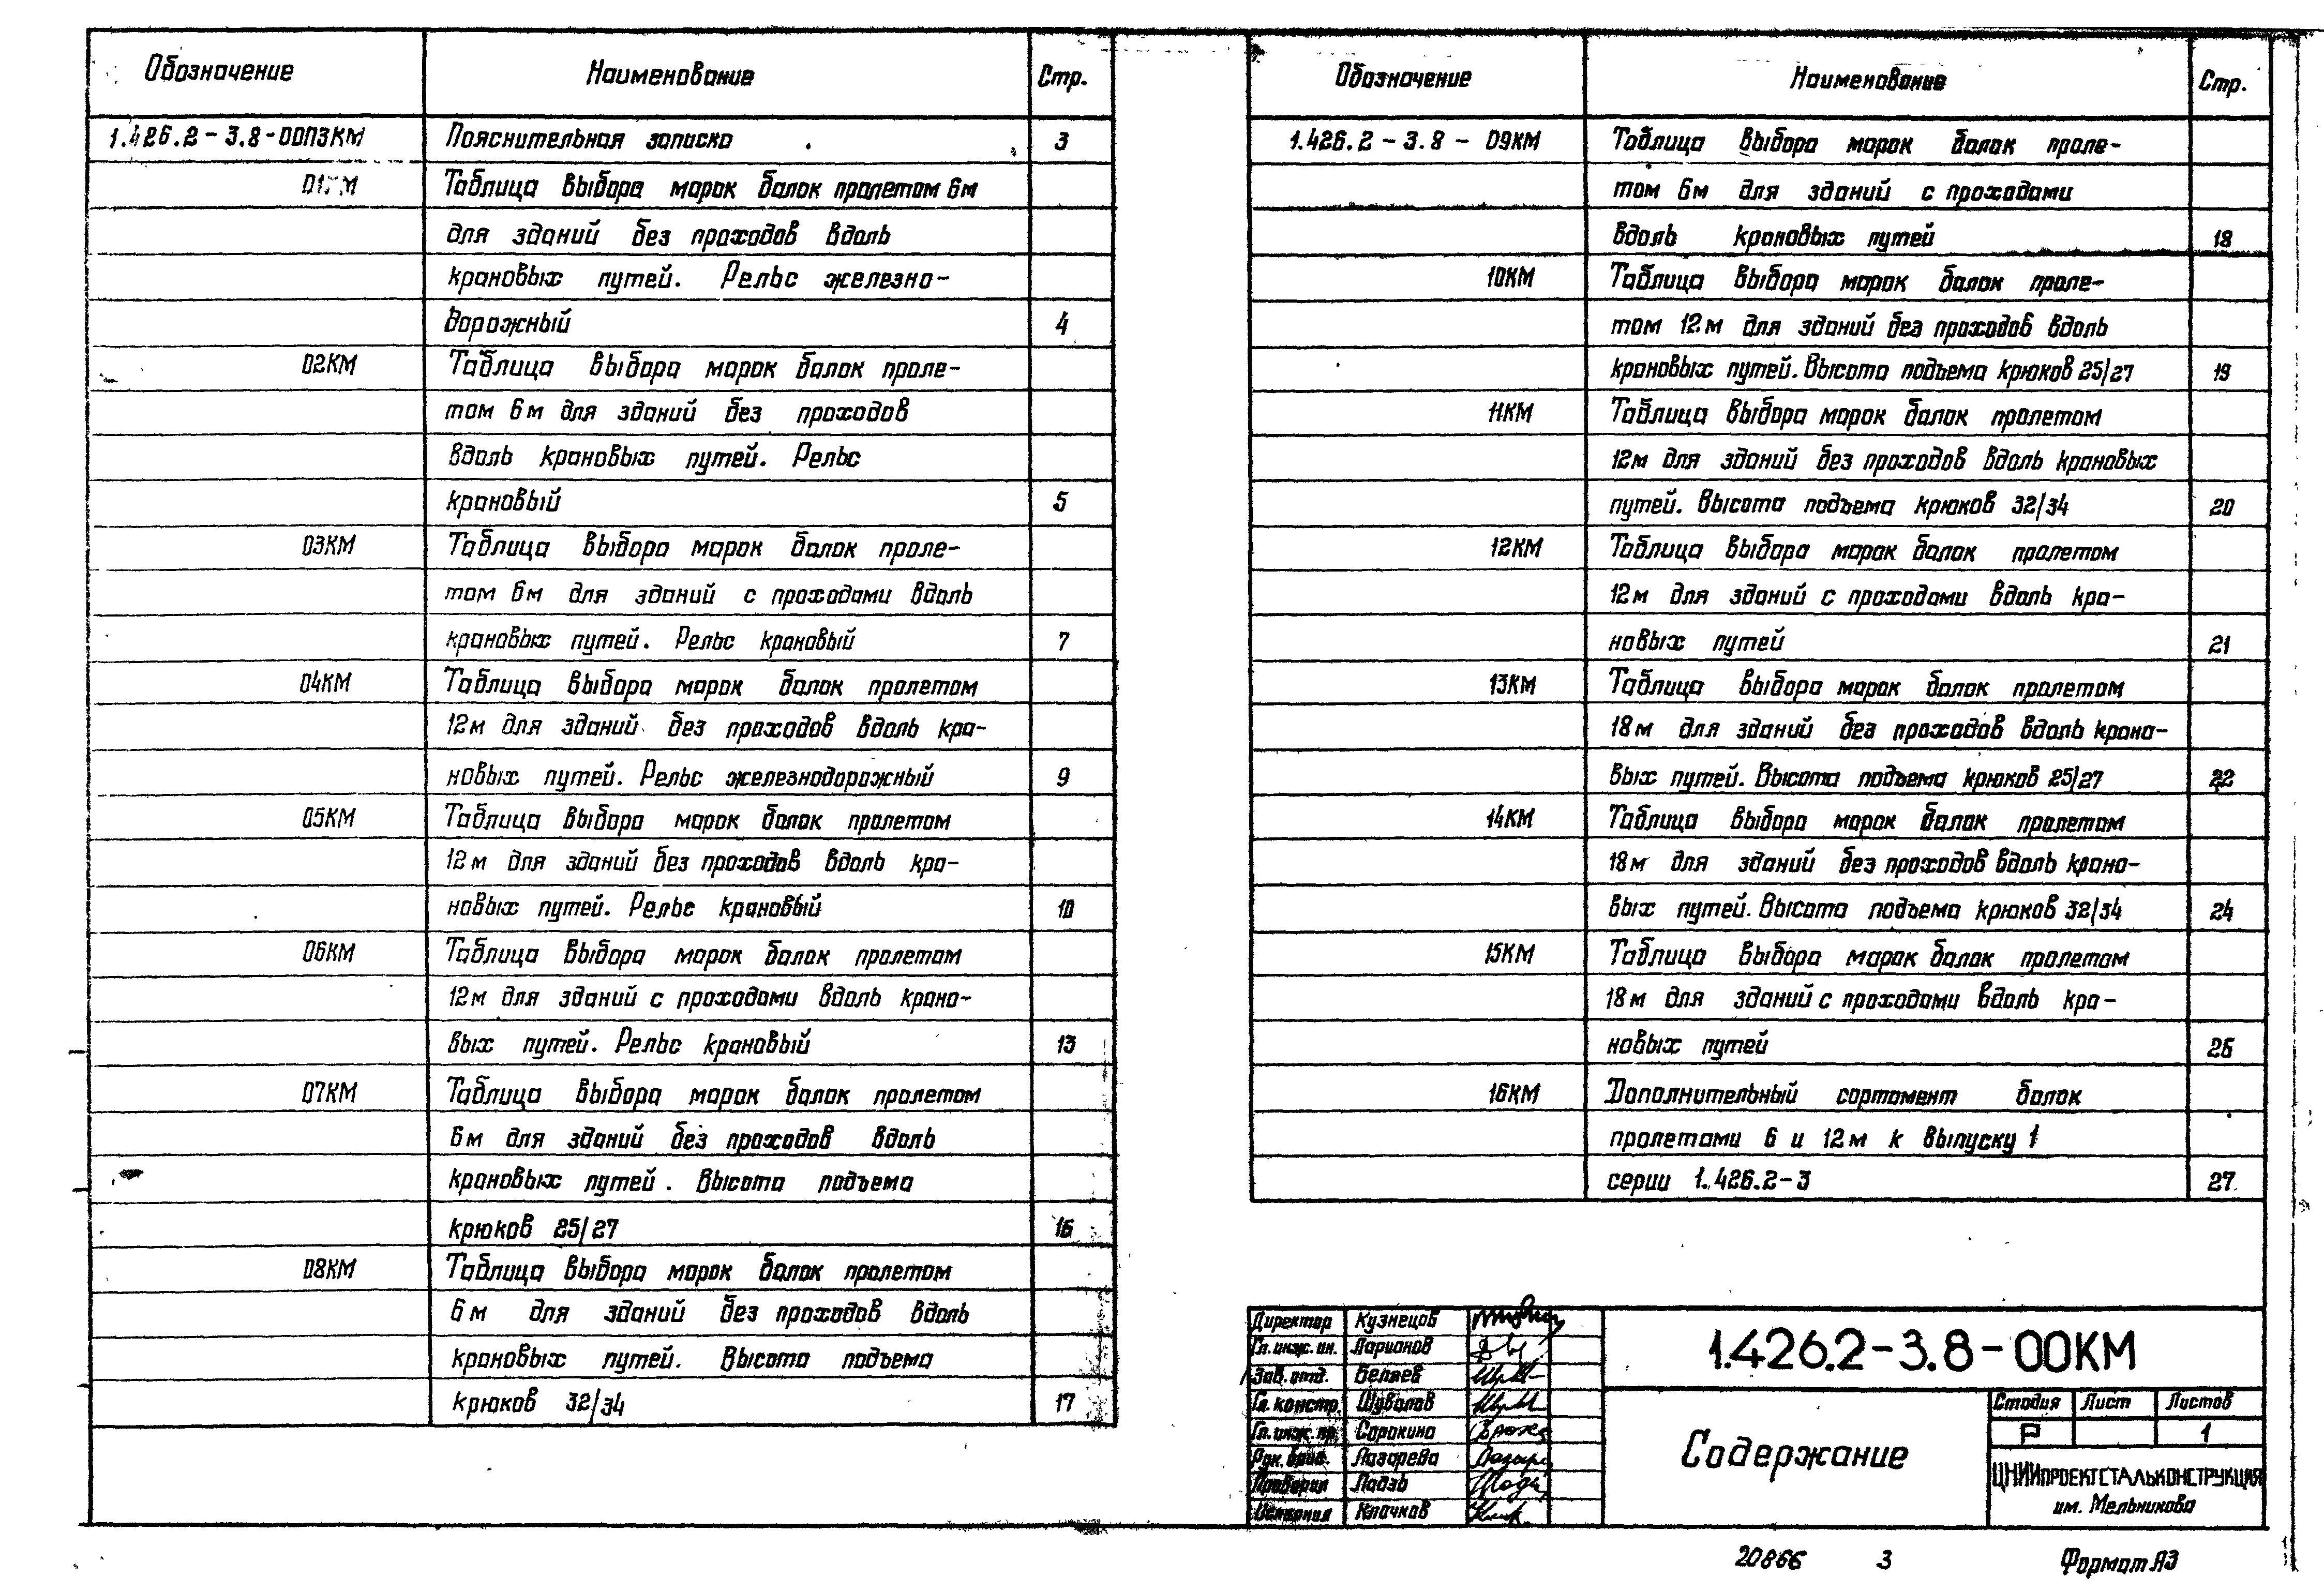 Обозначение Наименование Стр.
1.426.2-3.8-00ПЗКМ Пояснительная записка 3
01КМ Таблица выбора марок балок пролетом 6м
для зданий без проходов вдоль
крановых путей. Рельс железно-
дорожный 4
02КМ Таблица выбора марок балок проле-
том 6м для зданий без проходов
вдоль крановых путей. Рельс
крановый 5
03КМ Таблица выбора марок балок проле-
том 6м для зданий с проходами вдоль
крановых путей. Рельс крановый 7
04КМ Таблица выбора марок балок пролетом
12м для зданий без проходов вдоль кра-
новых путей. Рельс железнодорожный 9
05КМ Таблица выбора марок балок пролетом
12м для зданий без проходов вдоль кра-
новых путей. Рельс крановый 10
06КМ Таблица выбора марок балок пролетом
12м для зданий с проходами вдоль крано-
вых путей. Рельс крановый 13
07КМ Таблица выбора марок балок пролетом
6м для зданий без проходов вдоль
крановых путей. Высота подъема
крюков 25/27 16
08КМ Таблица выбора марок балок пролетом
6м для зданий без проходов вдоль
крановых путей. Высота подъема
крюков 32/34 17
Обозначение Наименование Стр.
1.426.2-3.8-09КМ Таблица выбора марок балок проле-
том 6м для зданий с проходами
вдоль крановых путей 18
10КМ Таблица выбора марок балок проле-
том 12м для зданий без проходов вдоль
крановых путей. Высота подъема крюков 25/27 19
11КМ Таблица выбора марок балок пролетом
12м для зданий без проходов вдоль крановых
путей. Высота подъема крюков 32/34 20
12КМ Таблица выбора марок балок пролетом
12м для зданий с проходами вдоль кра-
новых путей 21
13КМ Таблица выбора марок балок пролетом
18м для зданий без проходов вдоль крано-
вых путей. Высота подъема крюков 25/27 22
14КМ Таблица выбора марок балок пролетом
18м для зданий без проходов вдоль крано-
вых путей. Высота подъема крюков 32/34 24
15КМ Таблица выбора марок балок пролетом
18м для зданий с проходами вдоль кра-
новых путей 26
16КМ Дополнительный сортамент балок
пролетами 6 и 12м к выпуску 1
серии 1.426.2-3 27
Директор Кузнецов
Гл. инж. ин. Ларионов
Зав. отд. Беляев
Гл. констр. Шувалов
Гл. инж. пр. Сорокина
Рук. бриг. Лазарева
Проверил Ладзь
Исполнил Клачков
1.426.2-3.8-00КМ
Содержание
Стадия Лист Листов
Р 1
ЦНИИПРОЕКТСТАЛЬКОНСТРУКЦИЯ
им. Мельникова
20866 3 Формат А3